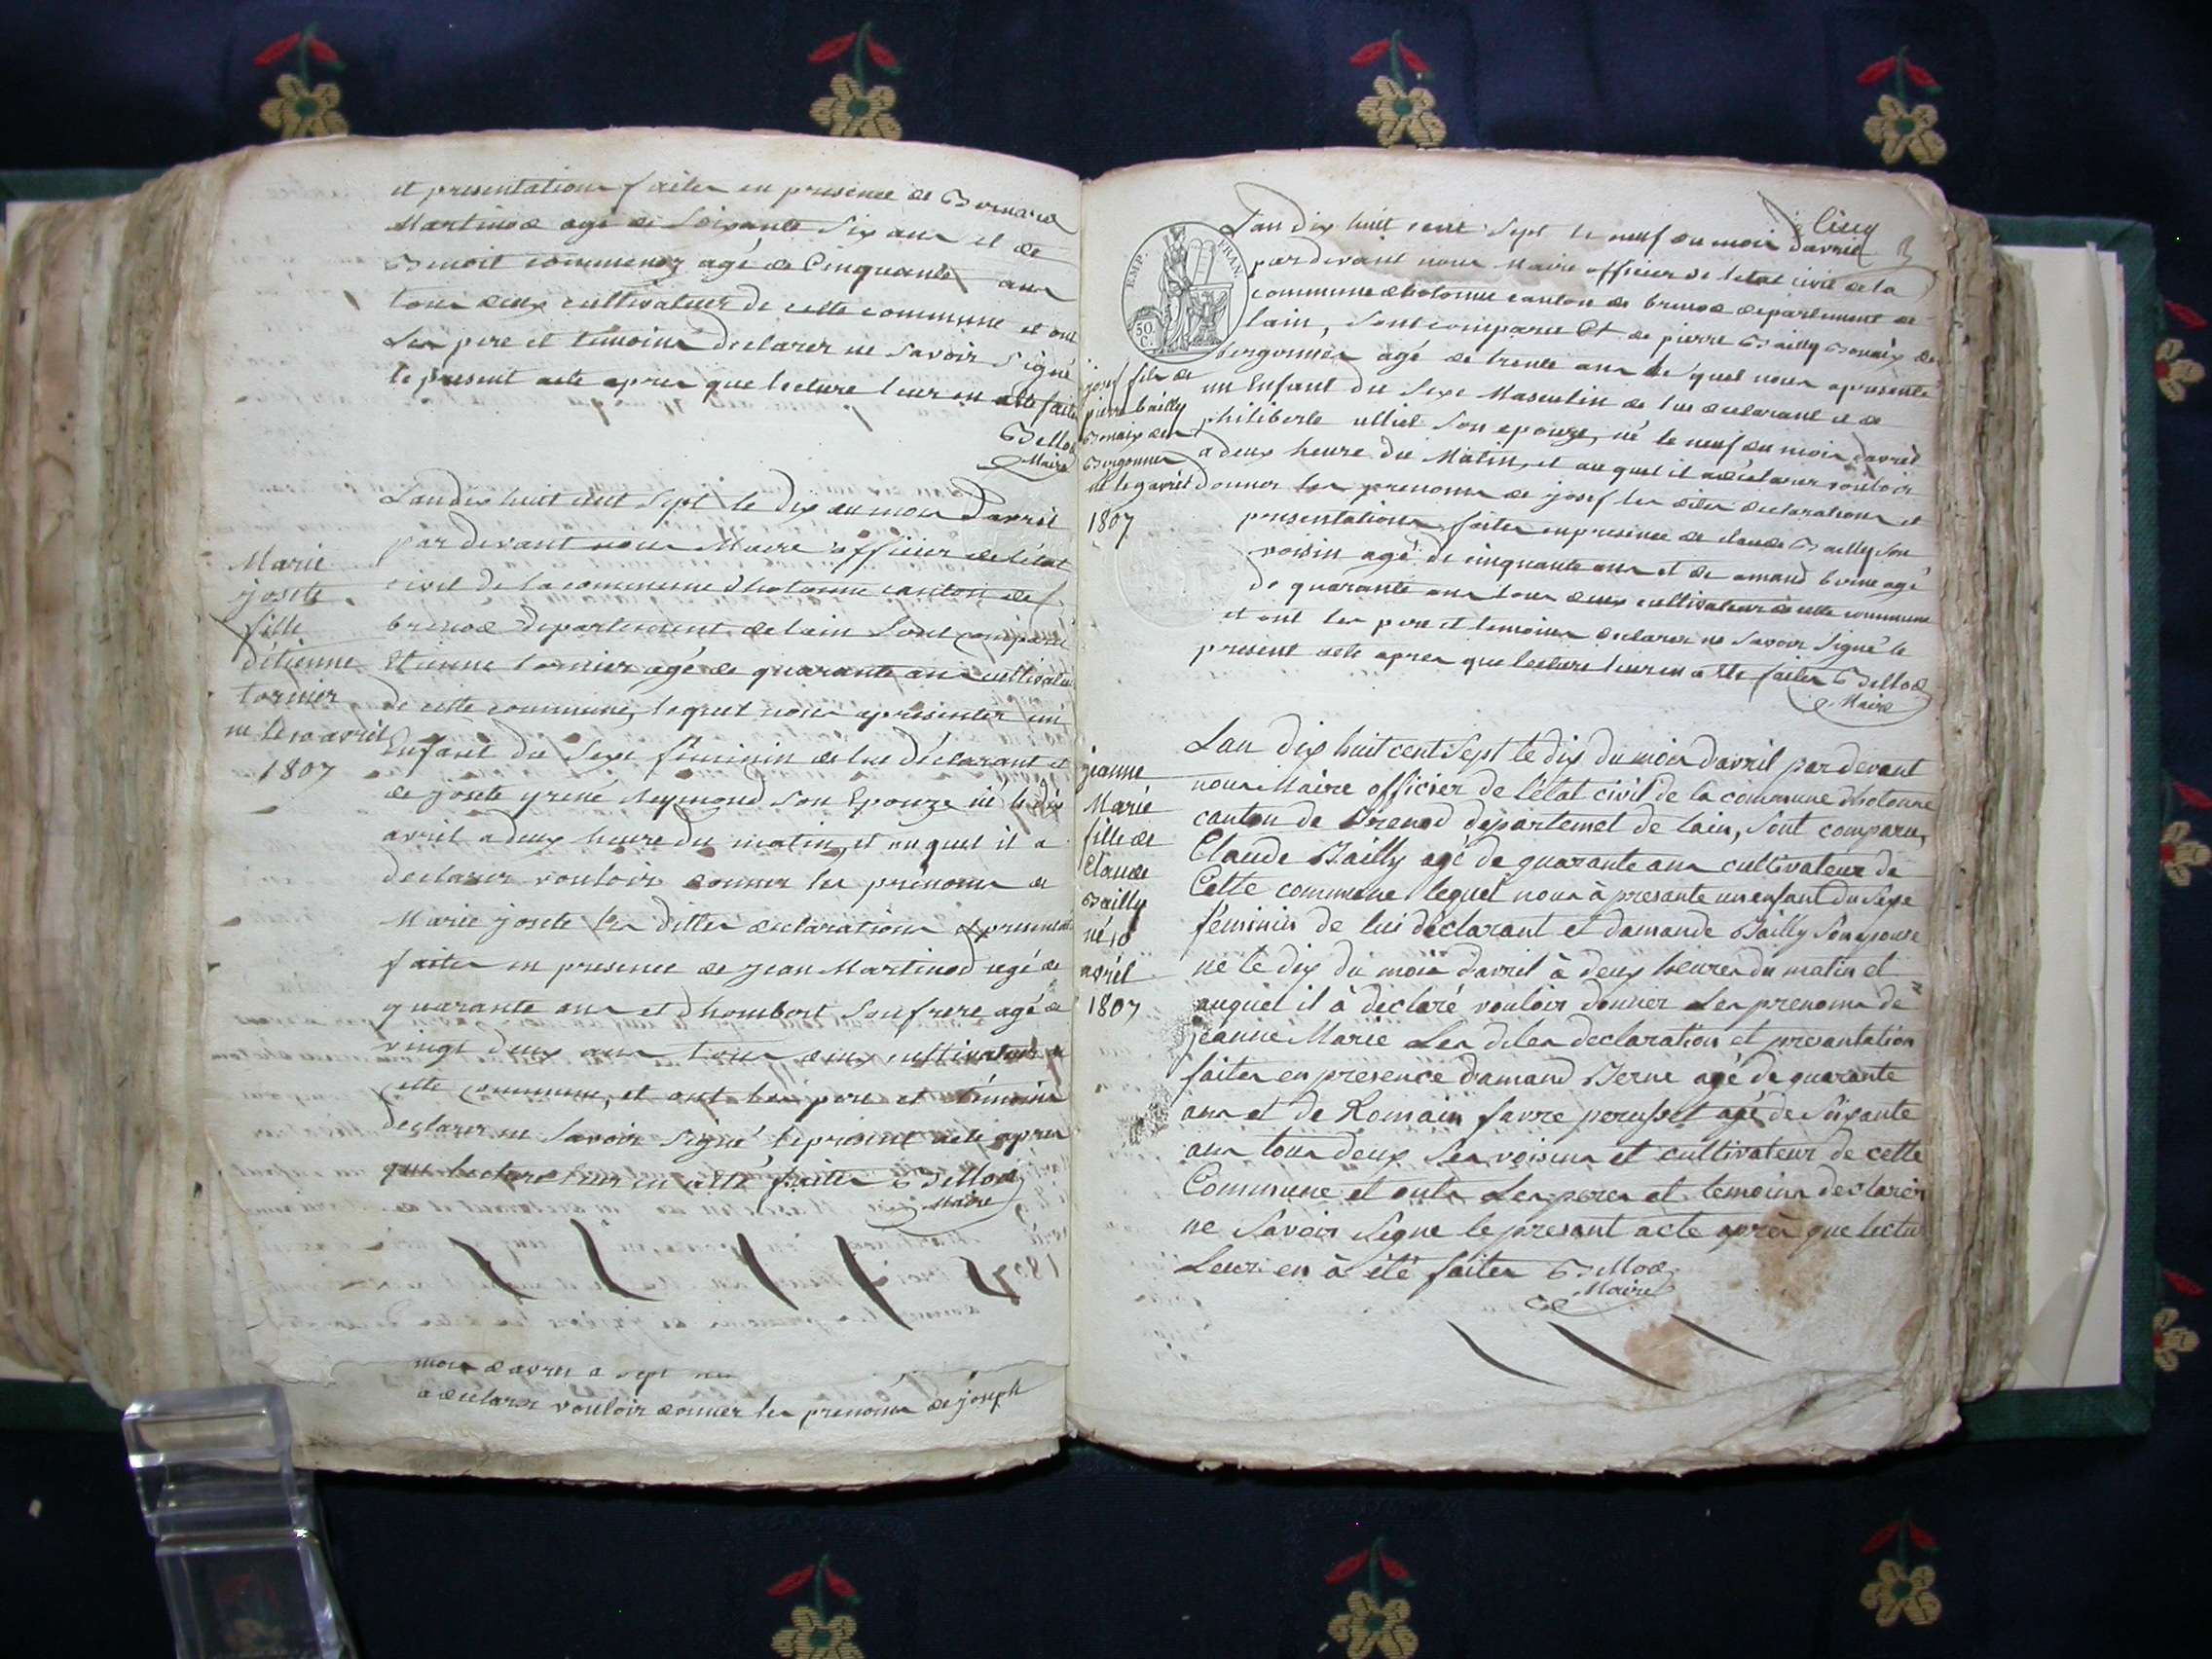 et presentations faites en presence de Bernard
Martinod agé de Soixante Six ans et de
Benoit commenoz agé de Cinquante ans
tous deux cultivateur de cette commune et ont
Les pere et temoins declarer ne Savoir Signé
le present acte apres que lecture leur en a été faite
Bellod
Maire
Marie
josete
fille
détienne
tornier
né le 10 avril
1807
Lan dix huit cent Sept le dix du mois davril
par devant nous Maire officier de létat
civil de la commune dhotonne canton de
brenod departement de lain Sont comparu
Etienne tornier agé de quarante ans cultivateur
de cette commune, lequel nous apresenter un
Enfant du Sexe féminin de lui déclarant et
de josete Reymond Son Epouze né le dix
avril a deux heure du matin, et auquel il a
declarer vouloir donner les prénoms de
Marie josete les dittes declarations et presentations
faites en presence de jean Martinod agé de
quarante ans et dhombert Son frere agé de
vingt deux ans tous deux cultivateur de
cette commune, et ont les pere et témoins
declarer ne Savoir Signé le présent acte apres
que lecture leur en a été faites Bellod
Maire
mois davril a sept
a declarer vouloir donner les prenoms de joseph
Cinq
josef fils de
pierre bailly
Bonaix des
Bergonnes
né le 9 avril
1807
Lan dix huit cent Sept le neuf du mois davril
par devant nous Maire officier de letat civil de la
commune dhotonne canton de brenod departement de
lain, Sont comparu Et de pierre Bailly Bonaix des
bergonnes agé de trente ans lequel nous apresenté
un Enfant du Sexe Masculin de lui declarant et de
philiberte ulliet Son epouze, né le neuf du mois davril
a deux heure du Matin, et auquel il a déclarer vouloir
donner les prenoms de josef les dites declarations et
presentations faites en presence de claude Bailly Son
voisin agé de cinquante ans et de amand berne agé
de quarante ans tous deux cultivateur de cette commune
et ont les pere et temoins declarer ne Savoir Signé le
present acte apres que lecture leur en a été faites Bellod
Maire
EMP. FRAN.
50 C.
jeanne
Marie
fille de
Claude
Bailly
né 10
avril
1807
Lan dix huit cent Sept le dix du mois davril par devant
nous Maire officier de létat civil de la commune dhotonne
canton de Brenod departemet de lain, Sont comparu,
Claude Bailly agé de quarante ans cultivateur de
Cette commune lequel nous à presante un enfant du Sexe
féminin de lui declarant et damande Bailly Son epouse
ne le dix du mois davril à deux heures du matin et
auquel il à declaré vouloir donner Les prenoms de
jeanne Marie Les dites declaration et presantation
faites en presence damand Berne agé de quarante
ans et de Romain favre perusset agé de Soixante
ans tous deux Ses voisins et cultivateur de cette
Commune et onts Les peres et temoins declarer
ne Savoir Signe le presant acte après que lectur
Leur en à été faites Bellod
Maire